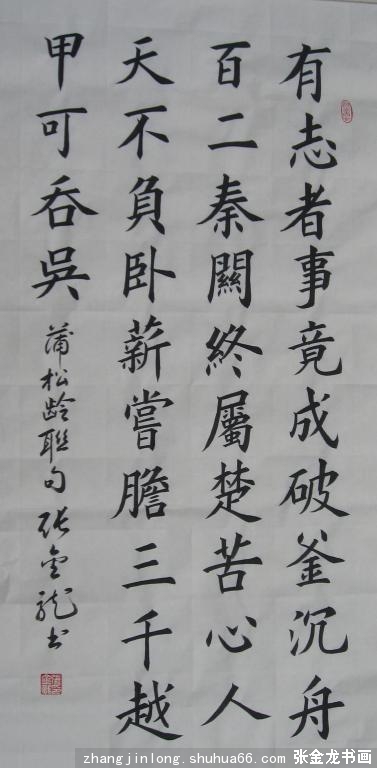 有志者事竟成破釜沉舟
百二秦關終屬楚苦心人
天不負卧薪嘗膽三千越
甲可吞吳
蒲松龄联句 张金龙书
zhangjinlong.shuhua66.com 张金龙书画